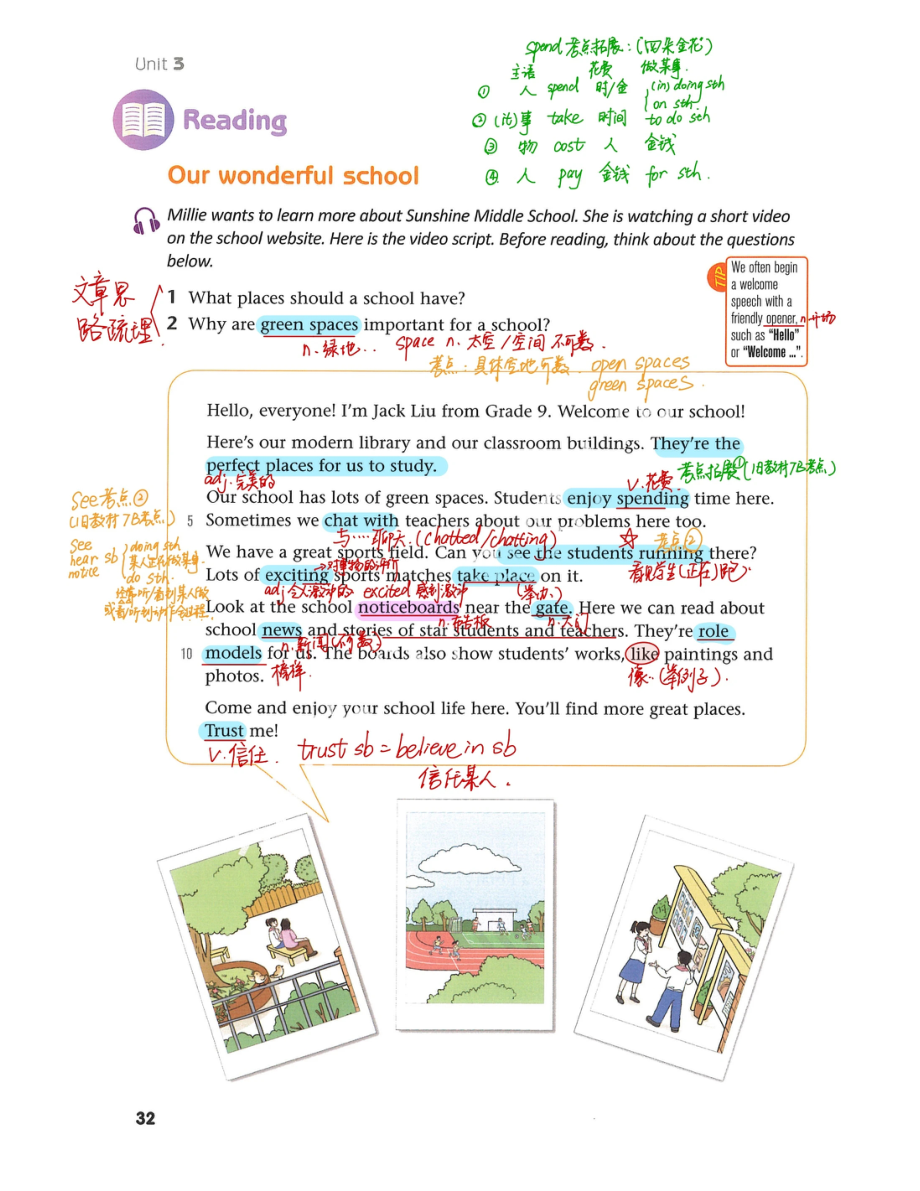 Unit 3
Reading
Our wonderful school
spend 考点拓展:(四朵金花)
主语 花费 做某事.
① 人 spend 时/金 (in) doing sth
on sth.
② (it)事 take 时间 to do sth
③ 物 cost 人 金钱
④ 人 pay 金钱 for sth.
Millie wants to learn more about Sunshine Middle School. She is watching a short video
on the school website. Here is the video script. Before reading, think about the questions
below.
文章思
路疏理
1 What places should a school have?
2 Why are green spaces important for a school?
n.绿地.. space n.太空/空间 不可数.
考点:具体空地可数. open spaces
green spaces.
TIP
We often begin
a welcome
speech with a
friendly opener, n.开场
such as “Hello”
or “Welcome ...”.
Hello, everyone! I’m Jack Liu from Grade 9. Welcome to our school!
Here’s our modern library and our classroom buildings. They’re the
perfect places for us to study.
adj.完美的
v.花费 考点拓展① (旧教材7B考点)
Our school has lots of green spaces. Students enjoy spending time here.
5 Sometimes we chat with teachers about our problems here too.
与…聊天.(chatted/chatting) 考点②
See考点②
(旧教材7B考点)
see
hear sb
notice
doing sth
某人正在做某事.
do sth.
We have a great sports field. Can you see the students running there?
→对事物的评价 看见学生(正在)跑
Lots of exciting sports matches take place on it.
adj令人激动的 excited 感到激动 (举办)
Look at the school noticeboards near the gate. Here we can read about
n.布告板 n.大门
school news and stories of star students and teachers. They’re role
n.新闻(不可数)
10 models for us. The boards also show students’ works, like paintings and
photos.
榜样. 像..(举例子).
Come and enjoy your school life here. You’ll find more great places.
Trust me!
v.信任. trust sb = believe in sb
信任某人.
32